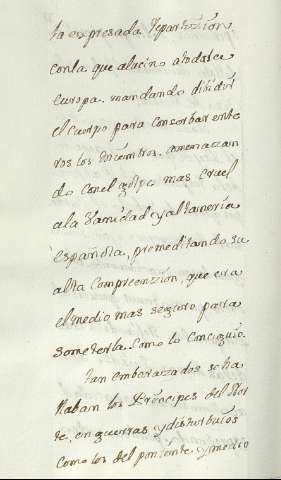 la expresada repartizion
conla que alucino atoda la
europa. mandando dividir
el Cuerpo para Conserbar ente
ros los miembros. amenazan
do conel golpe mas cruel
ala Vanidad, y altaneria
española, premeditando, su
alta Comprencion, que era
el medio mas seguro para
someterla. Como lo Conciguio.
tan embarazados se ha
llaban los Principes del Nor
te, en guerras, y disturbios
Como los del poniente, y medio